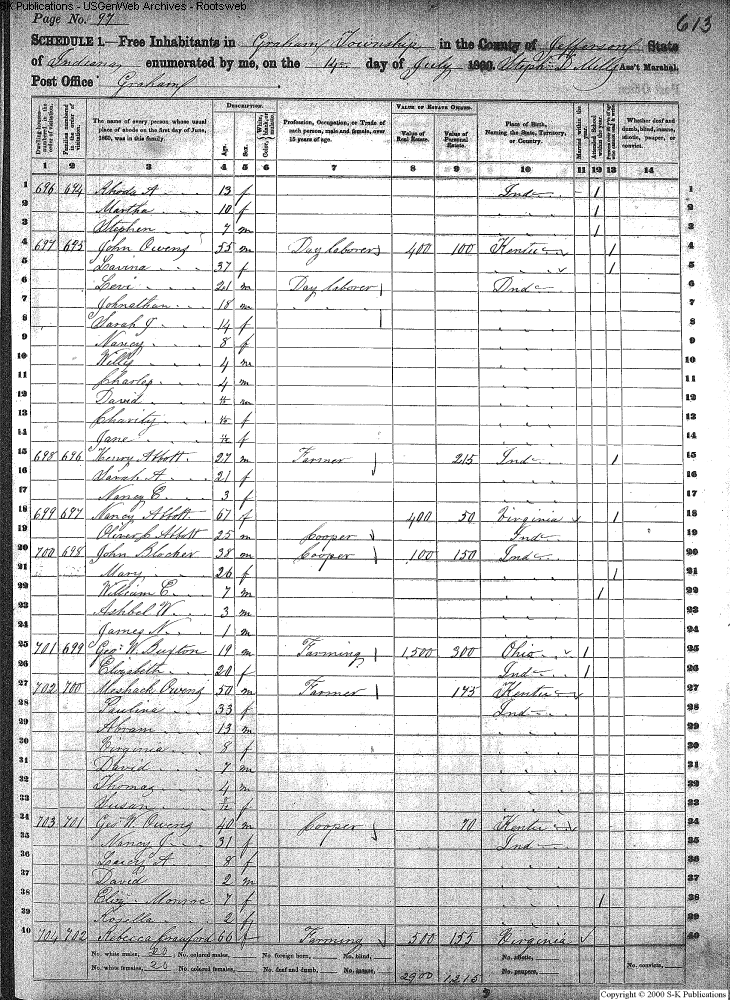 S-K Publications - USGenWeb Archives - Rootsweb
Page No. 97
613
SCHEDULE 1.—Free Inhabitants in Graham Township in the County of Jefferson State
of Indiana enumerated by me, on the 14 day of July 1860. Steph D Mills Ass't Marshal.
Post Office Graham
DESCRIPTION. VALUE OF ESTATE OWNED.
Dwelling-houses—numbered in the order of visitation.
Families numbered in the order of visitation.
The name of every person whose usual place of abode on the first day of June, 1860, was in this family.
Age. Sex. Color, White, black, or mulatto.
Profession, Occupation, or Trade of each person, male and female, over 15 years of age.
Value of Real Estate. Value of Personal Estate.
Place of Birth, Naming the State, Territory, or Country.
Married within the year.
Whether deaf and dumb, blind, insane, idiotic, pauper, or convict.
1 2 3 4 5 6 7 8 9 10 11 12 13 14
1 696 694 Rhoda A 13 f Ind 1 1
2 Martha 10 f " " 1 2
3 Stephen 7 m " " 1 3
4 697 695 John Owens 55 m Day laborer 400 100 Kentu 1 4
5 Lavina 37 f " " 1 5
6 Levi 21 m Day laborer Ind 6
7 Johnathan 18 m " " " " 7
8 Sarah J 14 f " " 8
9 Nancy 8 f " " 9
10 Willy 4 m " " 10
11 Charles 4 m " " 11
12 David m " " 12
13 Charity f " " 13
14 Jane f " " 14
15 698 696 Henry Abbott 27 m Farmer 215 Ind 1 15
16 Sarah A 21 f " " 16
17 Nancy E 3 f " " 17
18 699 697 Nancy Abbott 67 f 400 50 Virginia 1 18
19 Oliver C Abbott 25 m Cooper Ind 19
20 700 698 John Blocher 38 m Cooper 100 150 Ind 20
21 Mary 26 f " " 1 21
22 William E. 7 m " " 1 22
23 Ashbel W. 3 m " " 23
24 James N. 1 m " " 24
25 701 699 Geo. W. Buxton 19 m Farming 1,500 300 Ohio 1 25
26 Elizabeth 20 f Ind 1 26
27 702 700 Meshack Owens 50 m Farmer 175 Kentu 27
28 Paulina 33 f Ind 28
29 Abram 13 m " " 29
30 Virginia 8 f " " 30
31 David 7 m " " 31
32 Thomas 4 m " " 32
33 Susan f " " 33
34 703 701 Geo W. Owens 40 m Cooper 70 Kentu 34
35 Nancy J 31 f Ind 35
36 A 8 f " " 36
37 David 2 m " " 37
38 Eliz Monroe 7 f " " 1 38
39 Rosella 2 f " " 39
40 704 702 Rebecca Crawford 66 f Farming 500 155 Virginia 40
No. white males, 20 No. colored males, No. foreign born, No. blind, No. idiotic,
No. white females, 20 No. colored females, No. deaf and dumb, No. insane, 2900 1215 No. paupers, No. convicts,
Copyright © 2000 S-K Publications